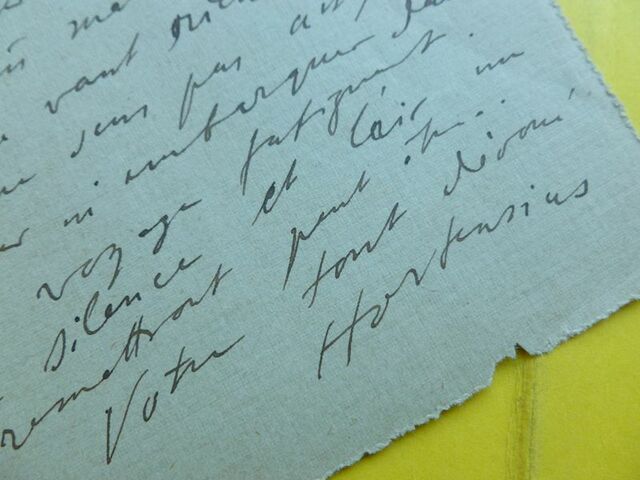 vaut rien
sens pas as
m'embarquer da
voyage fatigant.
silence et l'air un
remettront peut être...
Votre tout dévoué
Hortensius